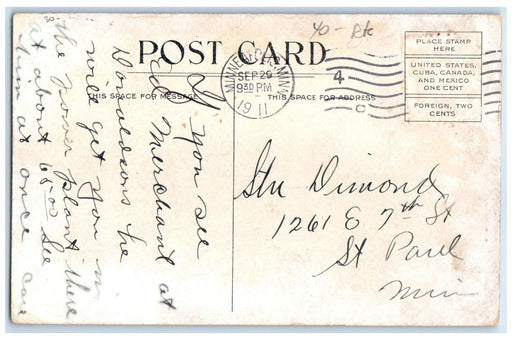 30-
40- Rk
POST CARD
THIS SPACE FOR MESSAGE
THIS SPACE FOR ADDRESS
MINNEAPOLIS, MINN.
SEP 29
930 PM
1911
4
C
PLACE STAMP
HERE
UNITED STATES,
CUBA, CANADA,
AND MEXICO
ONE CENT
FOREIGN, TWO
CENTS
If you see
Ed Merchant at
Donaldsons he
will get you in
the power plant there
at about 65 00 See
him at once
Stu Dimond
1261 E 7th St
St Paul
Min